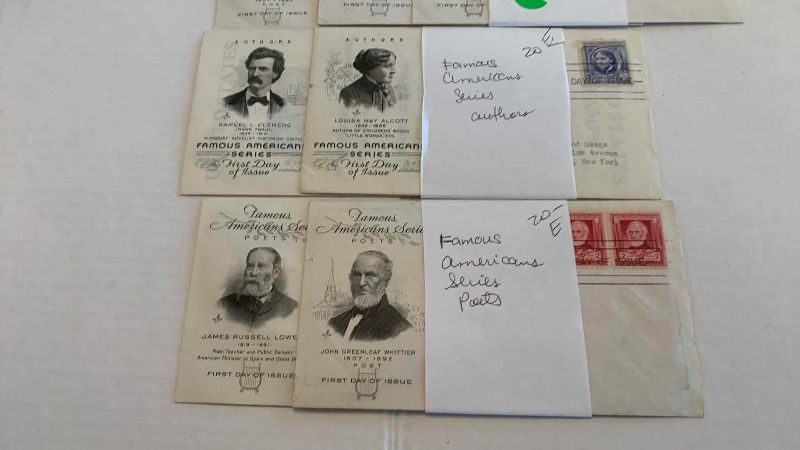 POET
FIRST DAY OF ISSUE
AUTHORS
SAMUEL L. CLEMENS
(MARK TWAIN)
1835 - 1910
HUMORIST NOVELIST HISTORIAN
FAMOUS AMERICAN
SERIES
First Day
of Issue
AUTHORS
LOUISA MAY ALCOTT
1832 - 1888
AUTHOR OF CHILDRENS BOOKS
"LITTLE WOMEN, ETC.
FAMOUS AMERICAN
SERIES
First Day
of Issue
20- E
Famous
Americans
Series
authors
DAY OF ISSUE
Avenue
, New York
Famous
Americans Seri
POETS
JAMES RUSSELL LOWE
1819 - 1891
Poet, Teacher and Public Servant
American Minister to Spain and Great B
FIRST DAY OF ISSUE
Famous
Americans Seri
POETS
JOHN GREENLEAF WHITTIER
1607 - 1892
POET
FIRST DAY OF ISSUE
20-
E
Famous
Americans
Series
Poets
DAY OF ISSUE